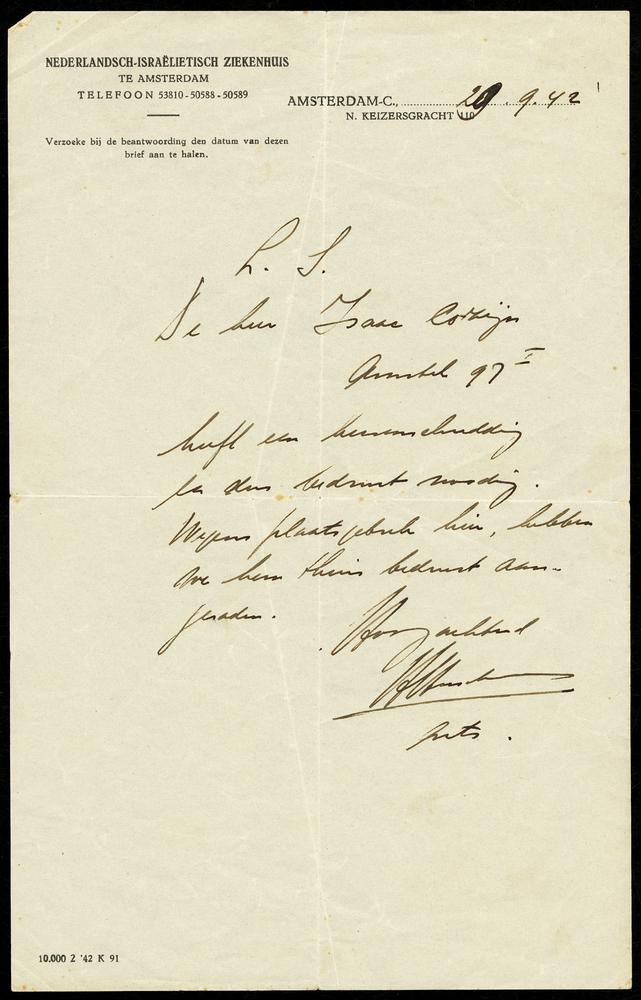 NEDERLANDSCH-ISRAËLIETISCH ZIEKENHUIS
TE AMSTERDAM
TELEFOON 53810-50588-50589
AMSTERDAM-C., 29.9.42
N. KEIZERSGRACHT 110
Verzoeke bij de beantwoording den datum van dezen
brief aan te halen.
L. S.
De heer Isaac Corbijn
Amstel 97 I
heeft een hersenschudding
en dus bedrust noodig.
Wegens plaatsgebrek hier, hebben
we hem thuis bedrust aan-
geraden.
Hoogachtend
arts.
10.000 2 '42 K 91